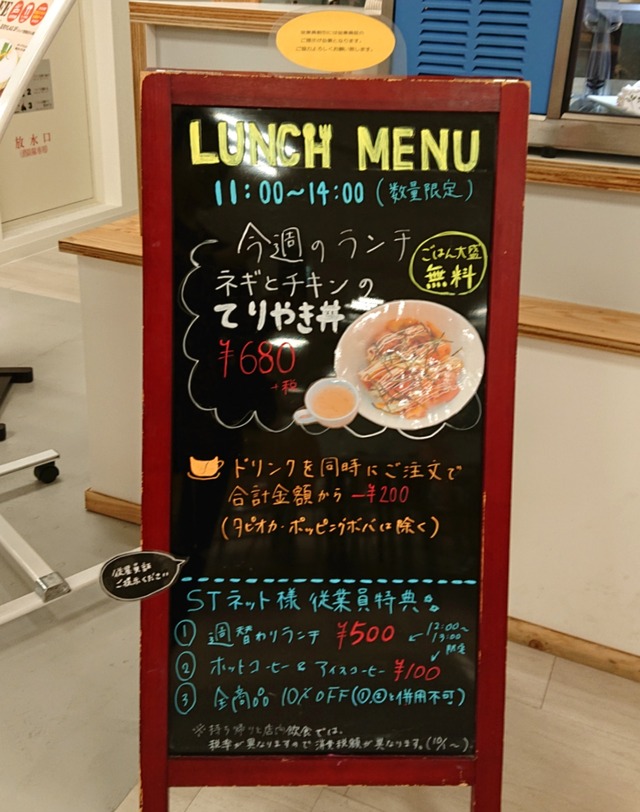 放水口
従業員割引には従業員証の
ご提示が必要となります。
ご協力よろしくお願い致します。
LUNCH MENU
11:00～14:00 (数量限定)
今週のランチ
ごはん大盛
無料
ネギとチキンの
てりやき丼
¥680
+税
ドリンクを同時にご注文で
合計金額から -¥200
(タピオカ・ポッピングボバは除く)
従業員証
ご提示ください
STネット様 従業員特典
① 週替わりランチ ¥500 ← 12:00～13:00 限定
② ホットコーヒー & アイスコーヒー ¥100
③ 全商品 10% OFF(①,②と併用不可)
※持ち帰りと店内飲食では、
税率が異なりますので消費税額が異なります。(10/1～)